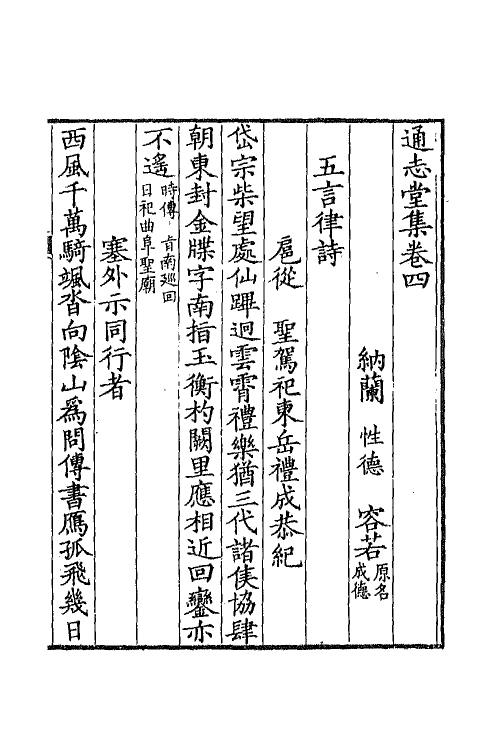 通志堂集卷四
納蘭 性德 容若 原名成德
五言律詩
扈從 聖駕祀東岳禮成恭紀
岱宗柴望處仙蹕迥雲霄禮樂猶三代諸侯協肆
朝東封金牒字南指玉衡杓闕里應相近回鑾亦
不遙 時傳 旨南巡回日祀曲阜聖廟
塞外示同行者
西風千萬騎颯沓向陰山爲問傳書鴈孤飛幾日